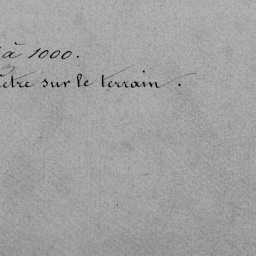 à 1000.
ètre sur le terrain.